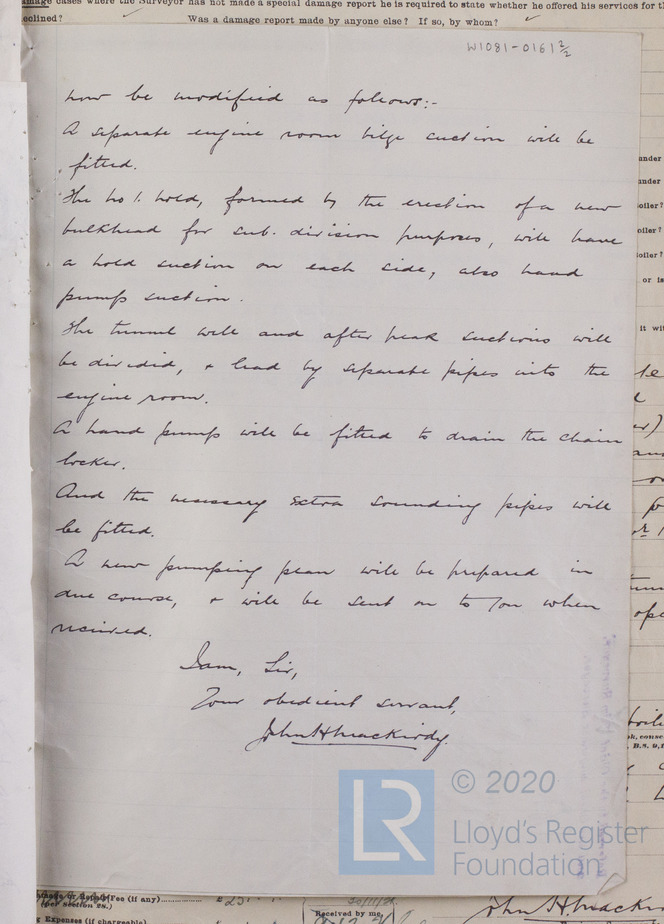 amage cases where the Surveyor has not made a special damage report he is required to state whether he offered his services for t
eclined? Was a damage report made by anyone else? If so, by whom?
W1081-0161 2/2
now be modified as follows:-
A separate engine room bilge suction will be
fitted.
The No 1. hold, formed by the erection of a new
bulkhead for sub. division purposes, will have
a hold suction on each side, also hand
pump suction.
The tunnel well and after peak suctions will
be divided, & lead by separate pipes into the
engine room.
A hand pump will be fitted to drain the chain
locker.
And the necessary extra sounding pipes will
be fitted.
A new pumping plan will be prepared in
due course, & will be sent on to you when
received.
I am, Sir,
Your obedient servant,
John H Mackirdy.
© 2020
LR
Lloyd's Register
Foundation
Fee (if any)
(per Section 28.)
Expenses (if chargeable)
Received by me,
John H. Mackir